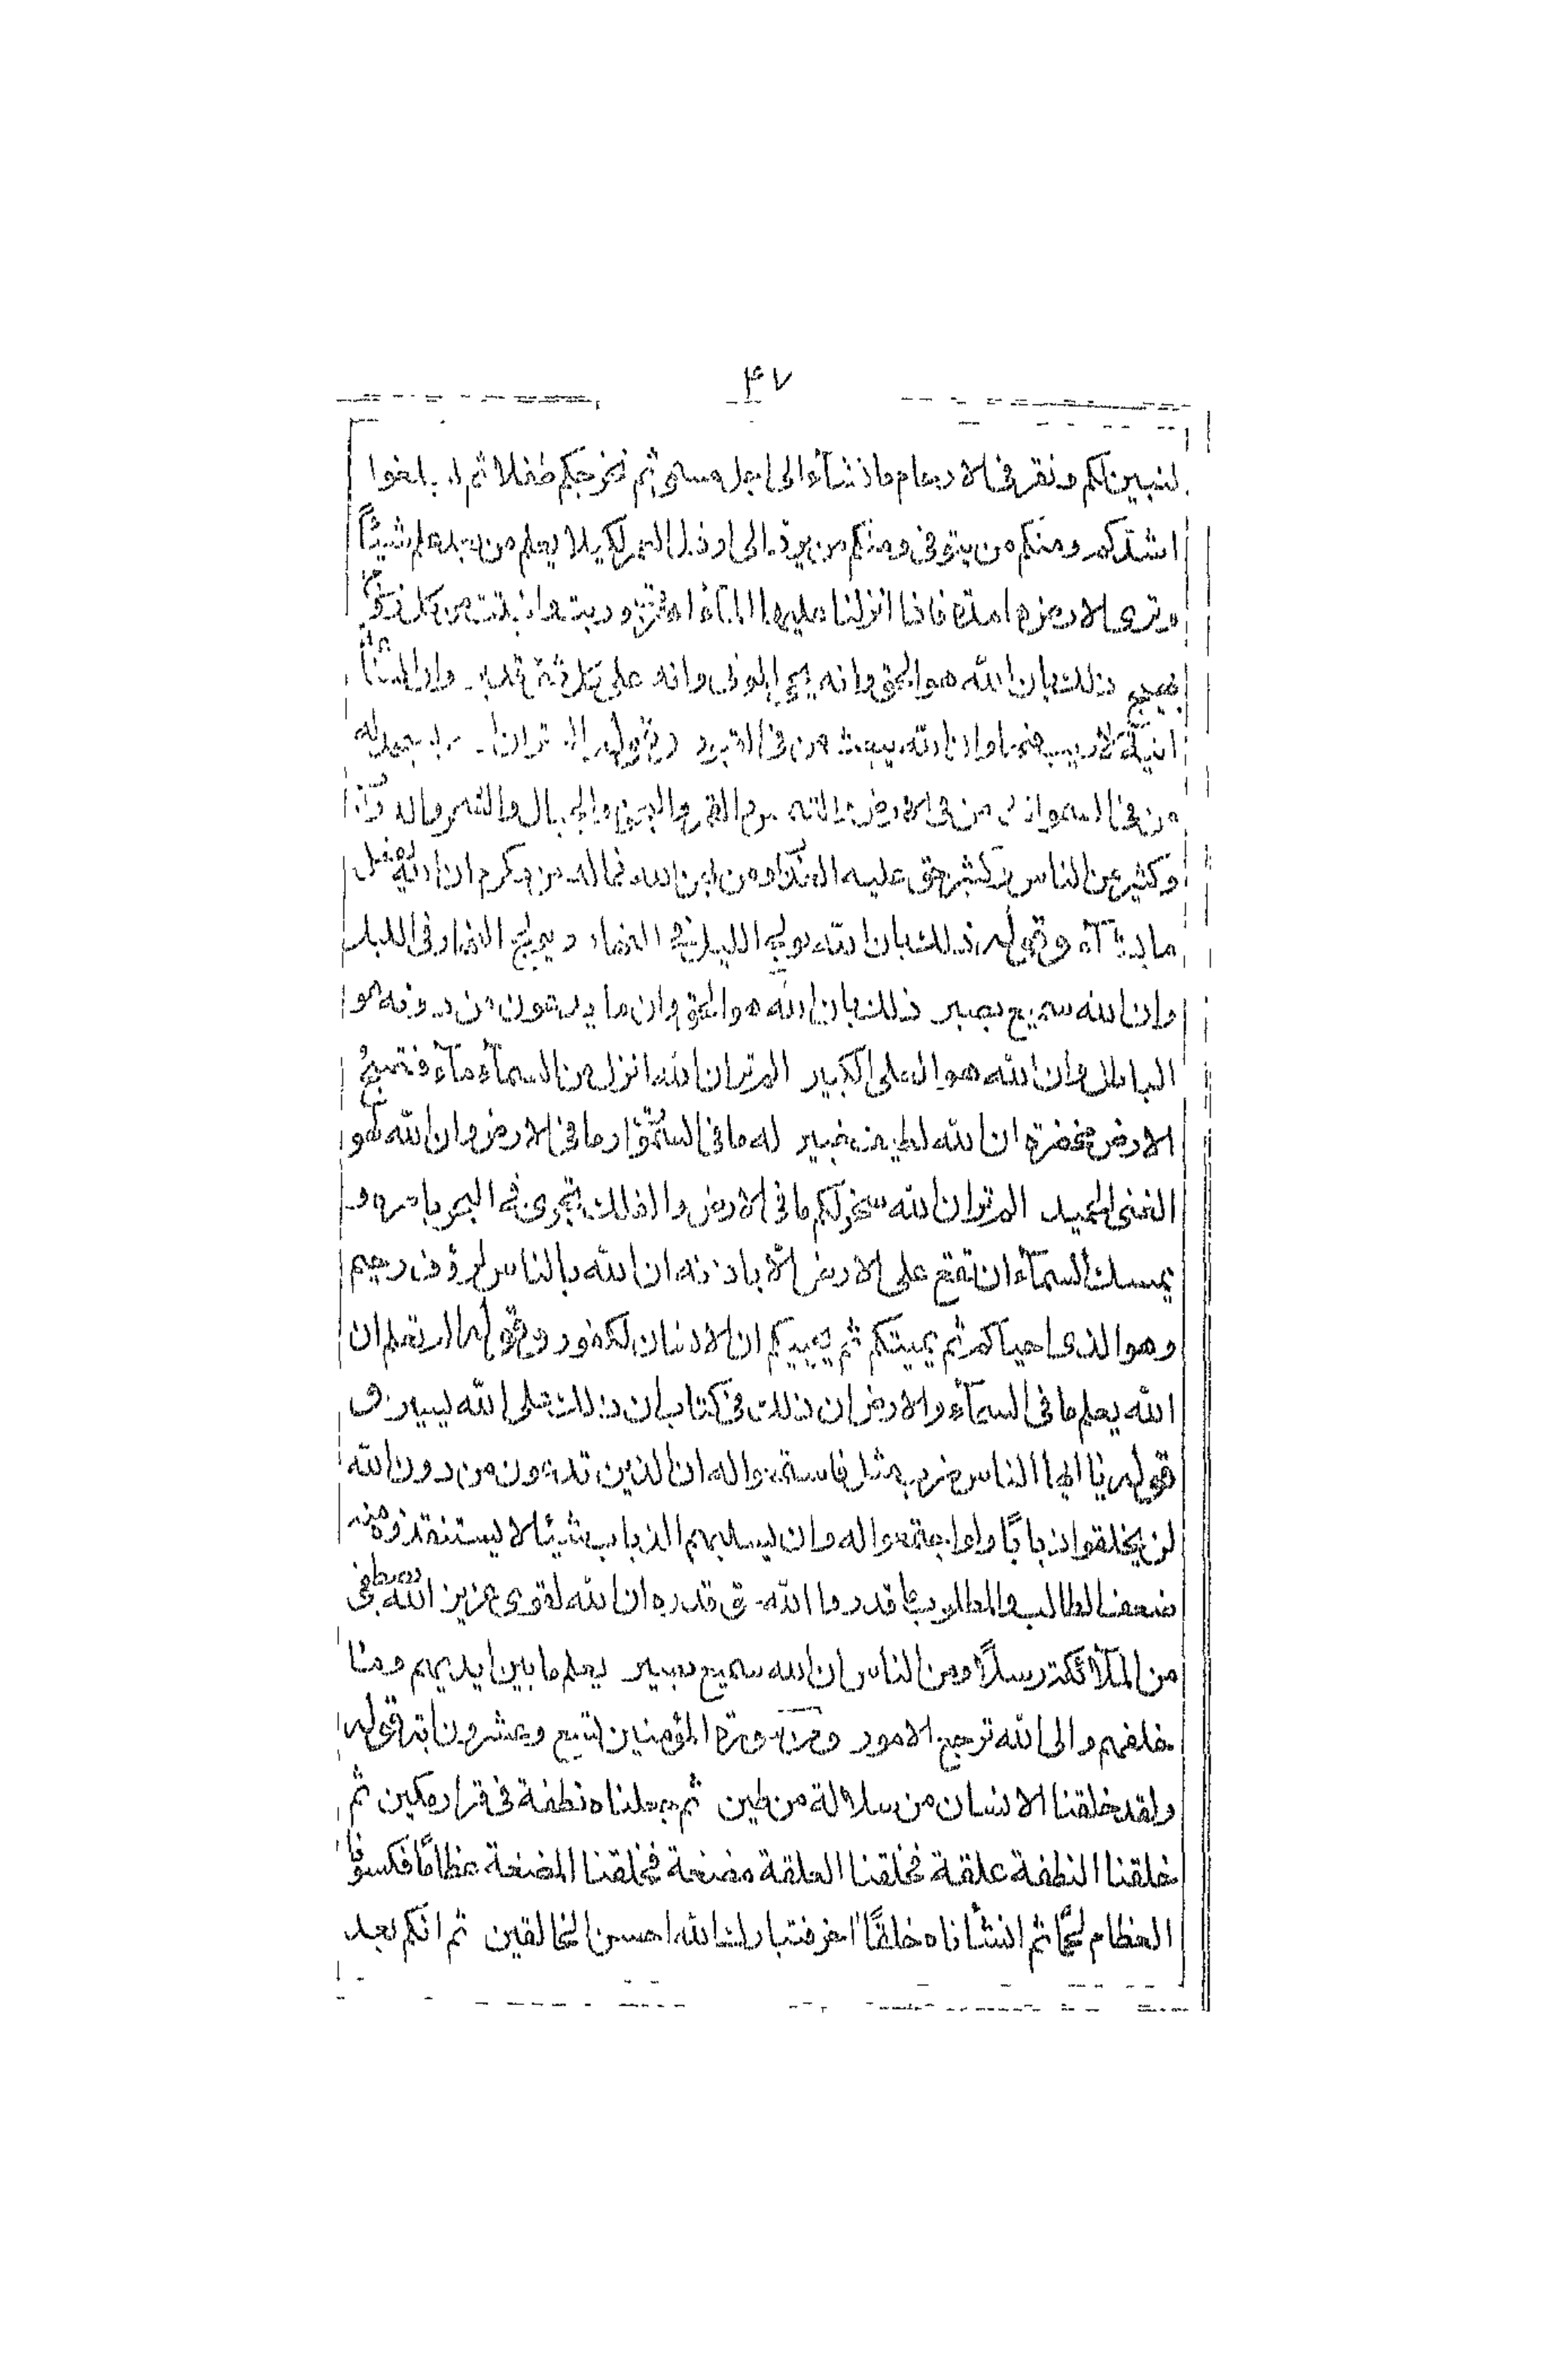 ۴۷
لنبين لكم ونقر فى الارحام ما نشآء الى اجل مسمى ثم نخرجكم طفلا ثم لتبلغوا
اشدكم ومنكم من يتوفى ومنكم من يرد الى ارذل العمر لكيلا يعلم من بعد علم شيئًا
وترى الارض هامدة فاذا انزلنا عليها المآء اهتزت وربت وانبتت من كل زوج
بهيج ذلك بان الله هو الحق وانه يحيى الموتى وانه على كل شئ قدير وان الساعة
اتية لا ريب فيها وان الله يبعث من فى القبور وقوله الم تران الله يسجد له
من فى السموات ومن فى الارض والشمس والقمر والنجوم والجبال والشجر والدوآب
وكثير من الناس وكثير حق عليه العذاب ومن يهن الله فما له من مكرم ان الله يفعل
ما يشآء وقوله ذلك بان الله يولج الليل فى النهار ويولج النهار فى الليل
وان الله سميع بصير ذلك بان الله هو الحق وان ما يدعون من دونه هو
الباطل وان الله هو العلى الكبير الم تران الله انزل من السمآء مآء فتصبح
الارض مخضرة ان الله لطيف خبير له ما فى السموات وما فى الارض وان الله لهو
الغنى الحميد الم تران الله سخر لكم ما فى الارض والفلك تجرى فى البحر بامره و
يمسك السمآء ان تقع على الارض الّا باذنه ان الله بالناس لرؤف رحيم
وهو الذى احياكم ثم يميتكم ثم يحييكم ان الانسان لكفور وقوله الم تعلم ان
الله يعلم ما فى السمآء والارض ان ذلك فى كتاب ان ذلك على الله يسير و
قوله يا ايها الناس ضرب مثل فاستمعوا له ان الذين تدعون من دون الله
لن يخلقوا ذبابًا ولو اجتمعوا له وان يسلبهم الذباب شيئًا لا يستنقذوه منه
ضعف الطالب والمطلوب ما قدروا الله حق قدره ان الله لقوى عزيز الله يصطفى
من الملآئكة رسلًا ومن الناس ان الله سميع بصير يعلم ما بين ايديهم وما
خلفهم والى الله ترجع الامور ومن سورة المؤمنين تسع وعشرون اية قوله
ولقد خلقنا الانسان من سلالة من طين ثم جعلناه نطفة فى قرار مكين ثم
خلقنا النطفة علقة فخلقنا العلقة مضغة فخلقنا المضغة عظامًا فكسونا
العظام لحمًا ثم انشأناه خلقًا اخر فتبارك الله احسن الخالقين ثم انكم بعد